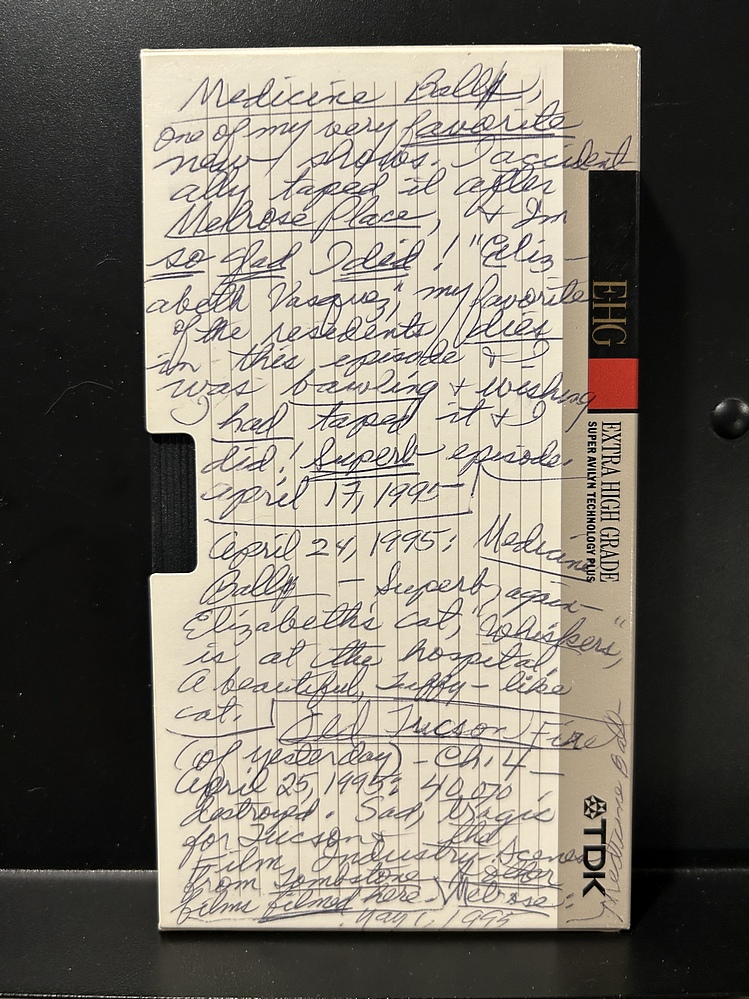 Medicine Ball$,
one of my very favorite
new shows. I accident
ally taped it after
Melrose Place, & I'm
so glad I did! "Eliz-
abeth Vasquez," my favorite
of the residents dies
in this episode & I
was bawling & wishing
I had taped it & I
did! Superb episode.
April 17, 1995
April 24, 1995: Medicine
Ball$ - Superb, again-
Elizabeth's cat, "Whiskers,"
is at the hospital,
a beautiful, Tuffy-like
cat. Old Tucson Fire
(of yesterday) - Ch. 4 -
April 25, 1995: 40,070
destroyed. Sad, tragic
for Tucson & the
Film Industry. Scenes
from Tombstone & other
films filmed here. Melrose:
May 1, 1995
EHG
EXTRA HIGH GRADE
SUPER AVILYN TECHNOLOGY PLUS
TDK
Medicine Ball